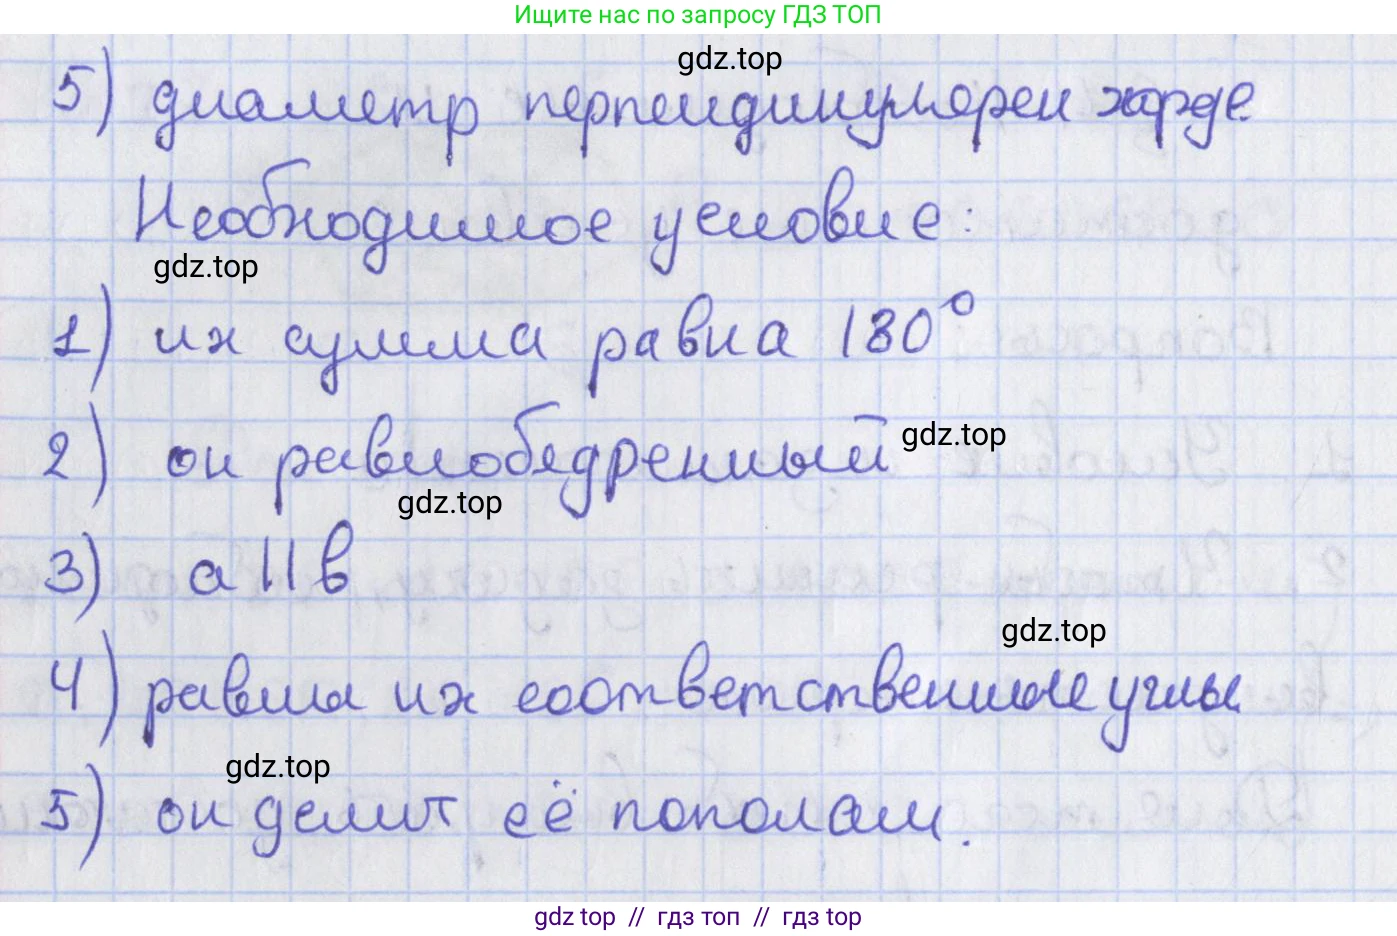 Ищите нас по запросу ГДЗ ТОП
gdz.top
5) диаметр перпендикулярен хорде.
Необходимое условие:
gdz.top
1) их сумма равна 180°
2) он равнобедренный
gdz.top
gdz.top
3) a || b
gdz.top
4) равны их соответственные углы
gdz.top
5) он делит её пополам.
gdz top // гдз топ // гдз top